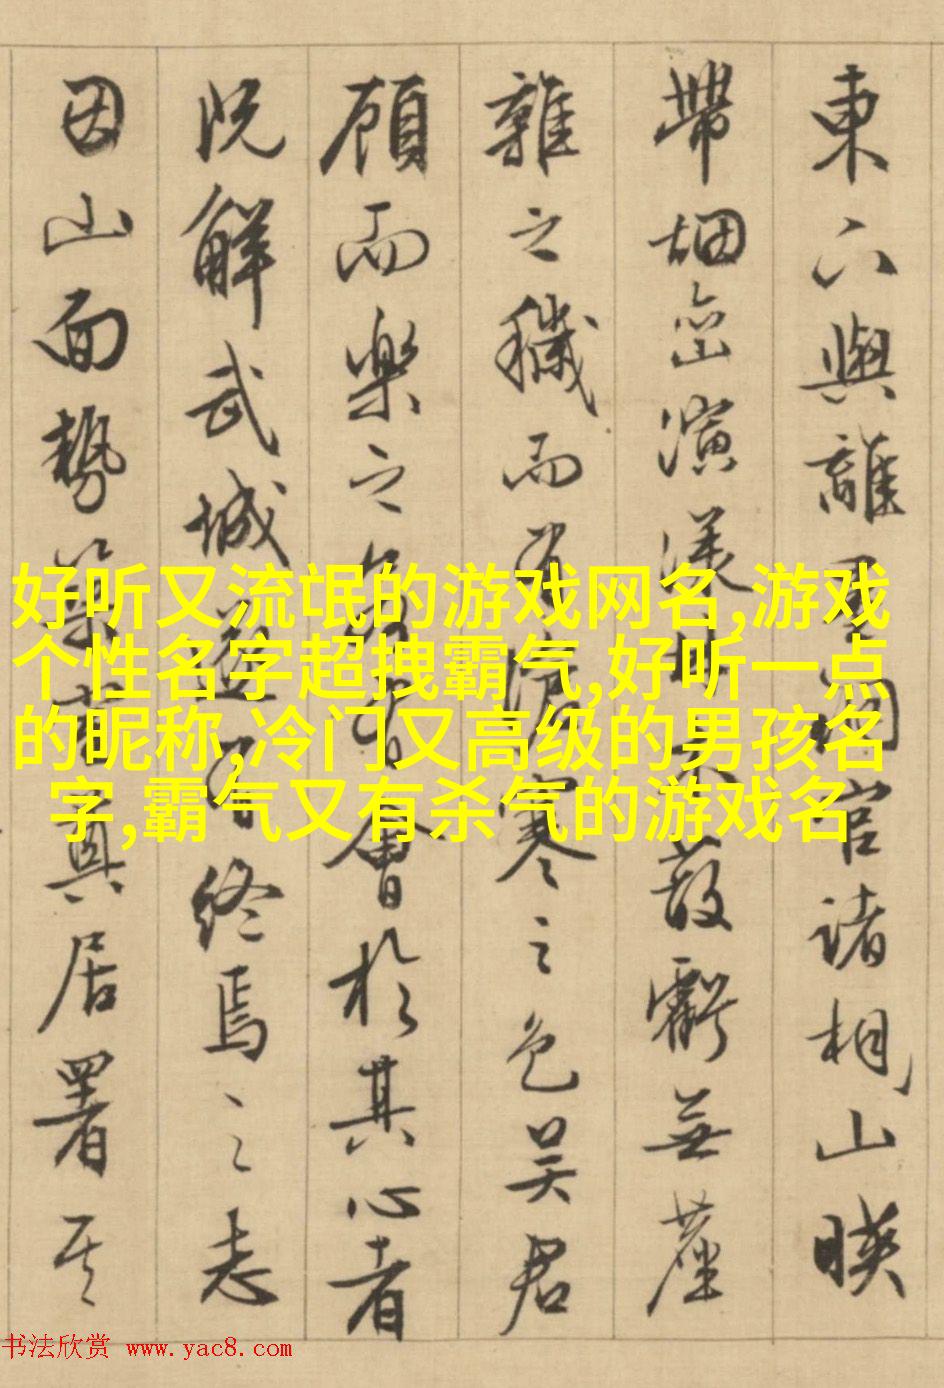 東六與離諸相山暎
帶烟巒演漾無塵
雜之穢而有清寒之色吴君
顧而樂之會於其心者
既解武城遂有終焉之志
因山面勢築真居署其
好听又流氓的游戏网名,游戏
个性名字超拽霸气,好听一点
的昵称,冷门又高级的男孩名
字,霸气又有杀气的游戏名
书法欣赏 www.yac8.com